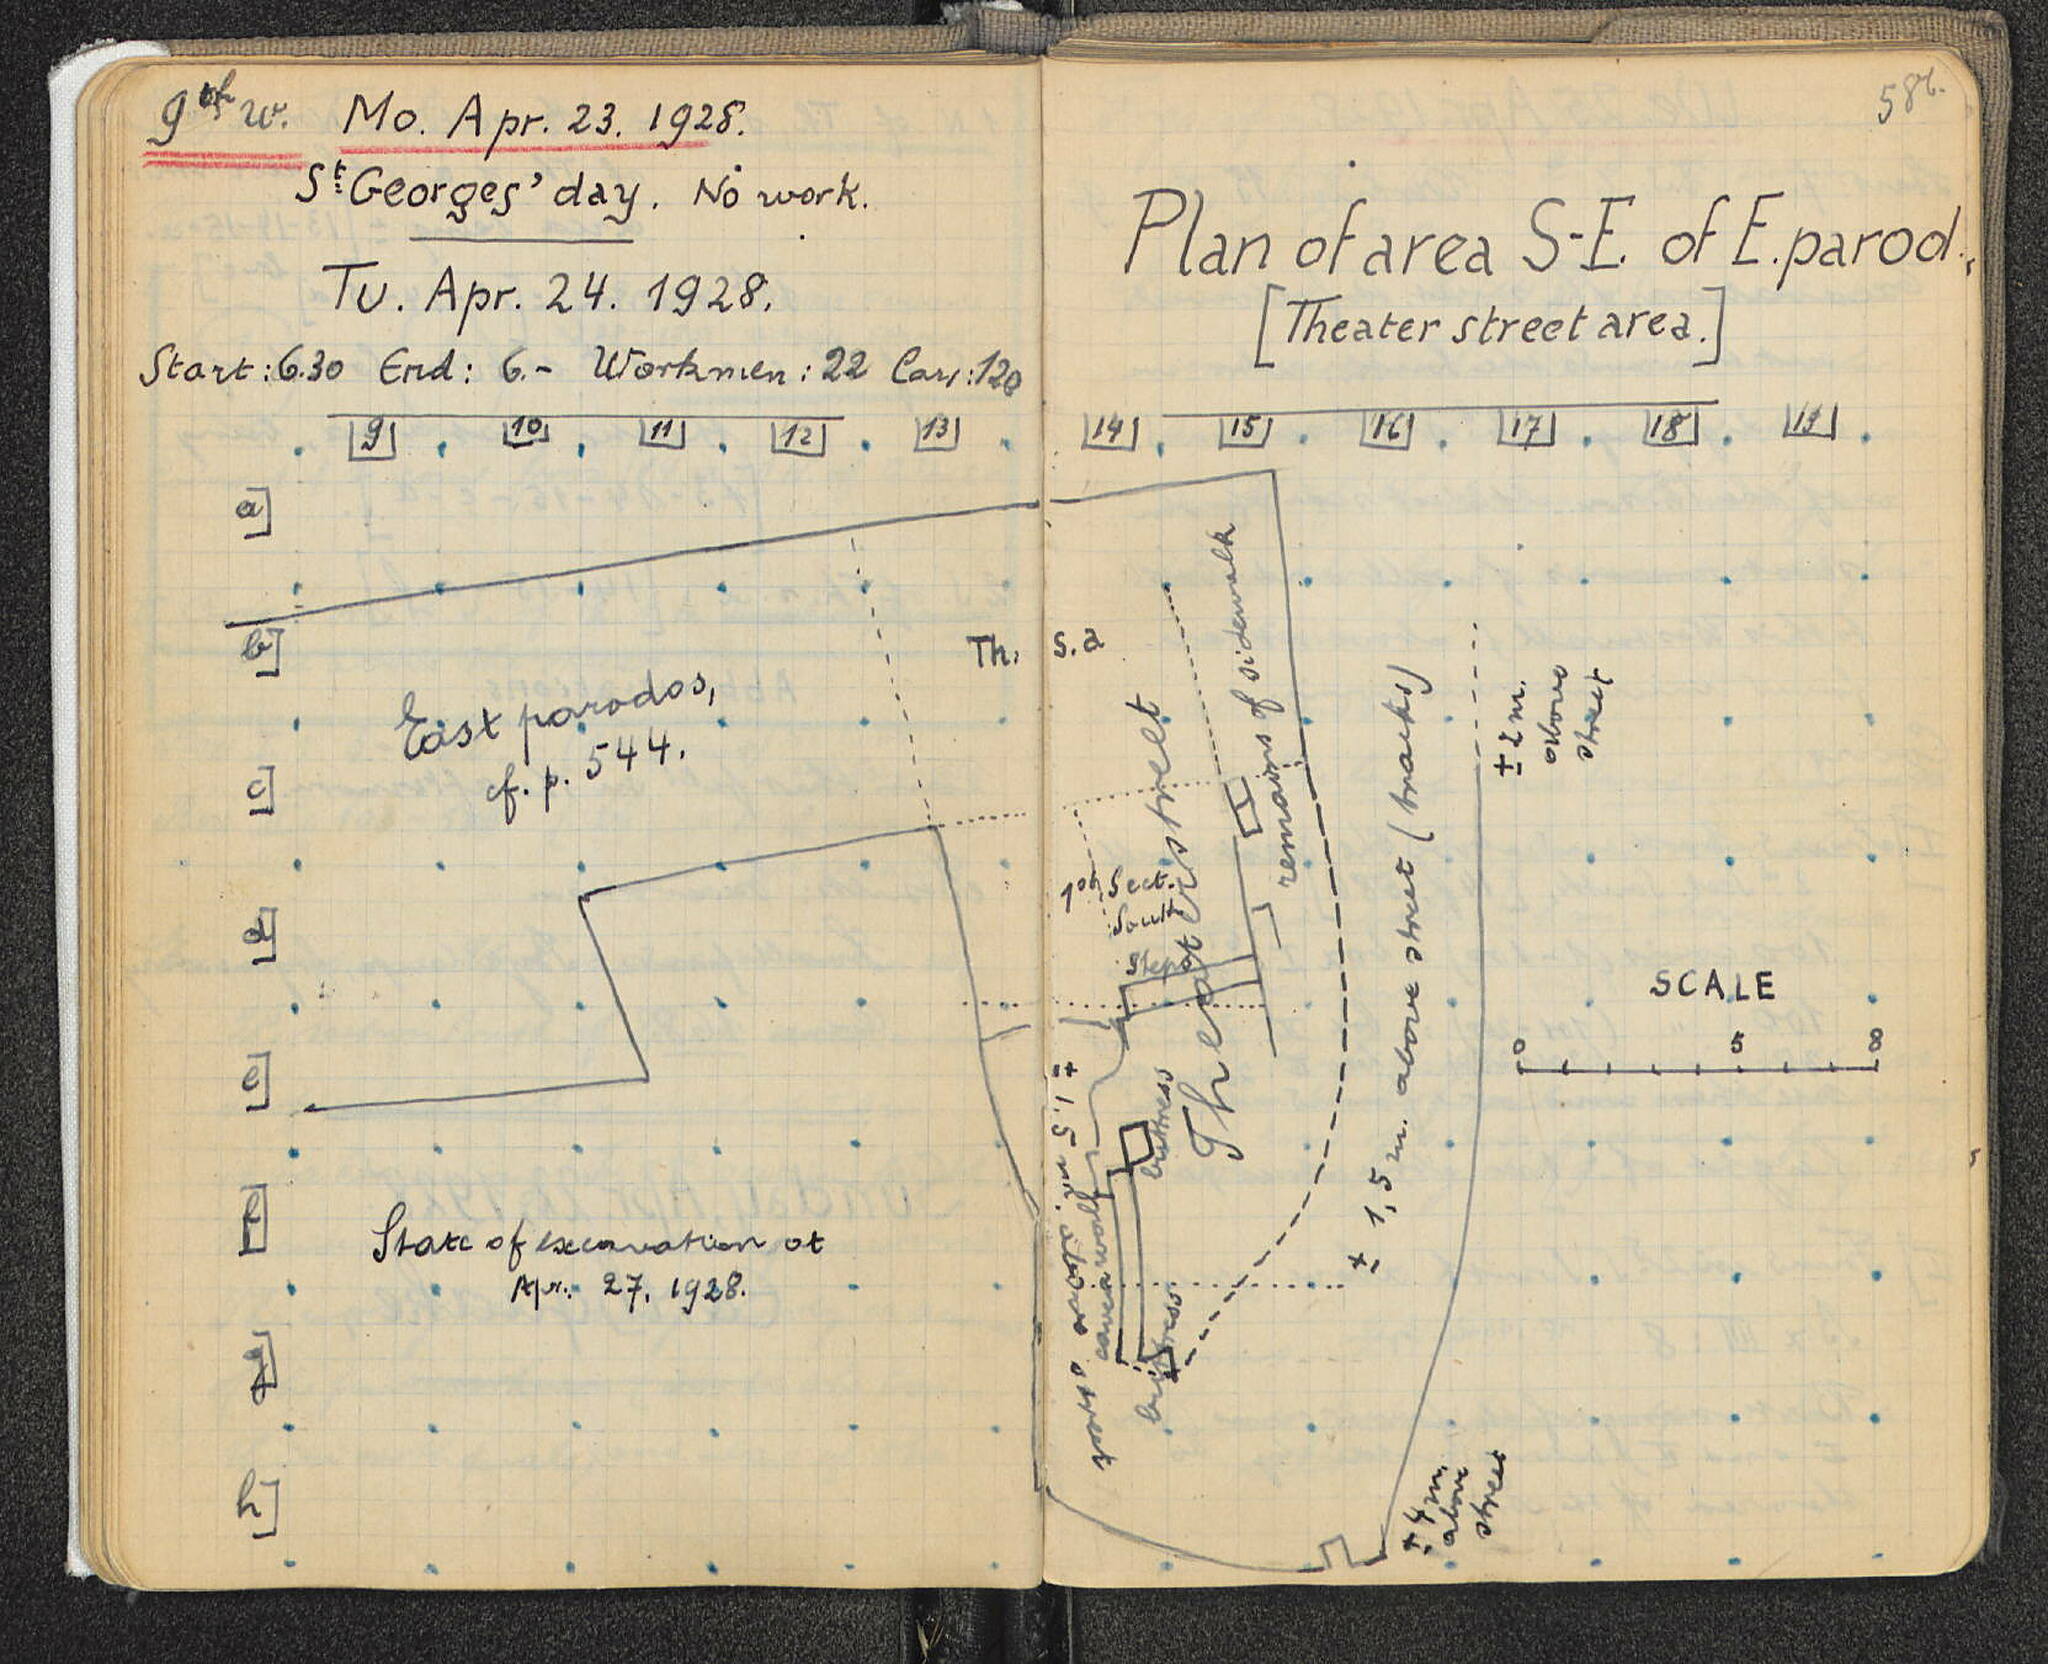 9th w. Mo. Apr. 23. 1928.
St Georges' day. No work.
Tu. Apr. 24. 1928.
Start: 6.30 End: 6.- Workmen: 22 Cars: 120
9 10 11 12 13
a
b
c
d
e
f
h
Th.
East parodos,
cf. p. 544.
State of excavation at
Apr. 27, 1928.
586.
Plan of area S-E. of E. parod.
[Theater street area.]
14 15 16 17 18 19
s.a
remains of sidewalk
Theater street
1st Sect.
South
step
± 1,5 m. above street (tracks)
± 2 m.
above
street
SCALE
0 5
buttress
cavea wall
± 1,5 m. above street
buttress
± 4 m.
above
street